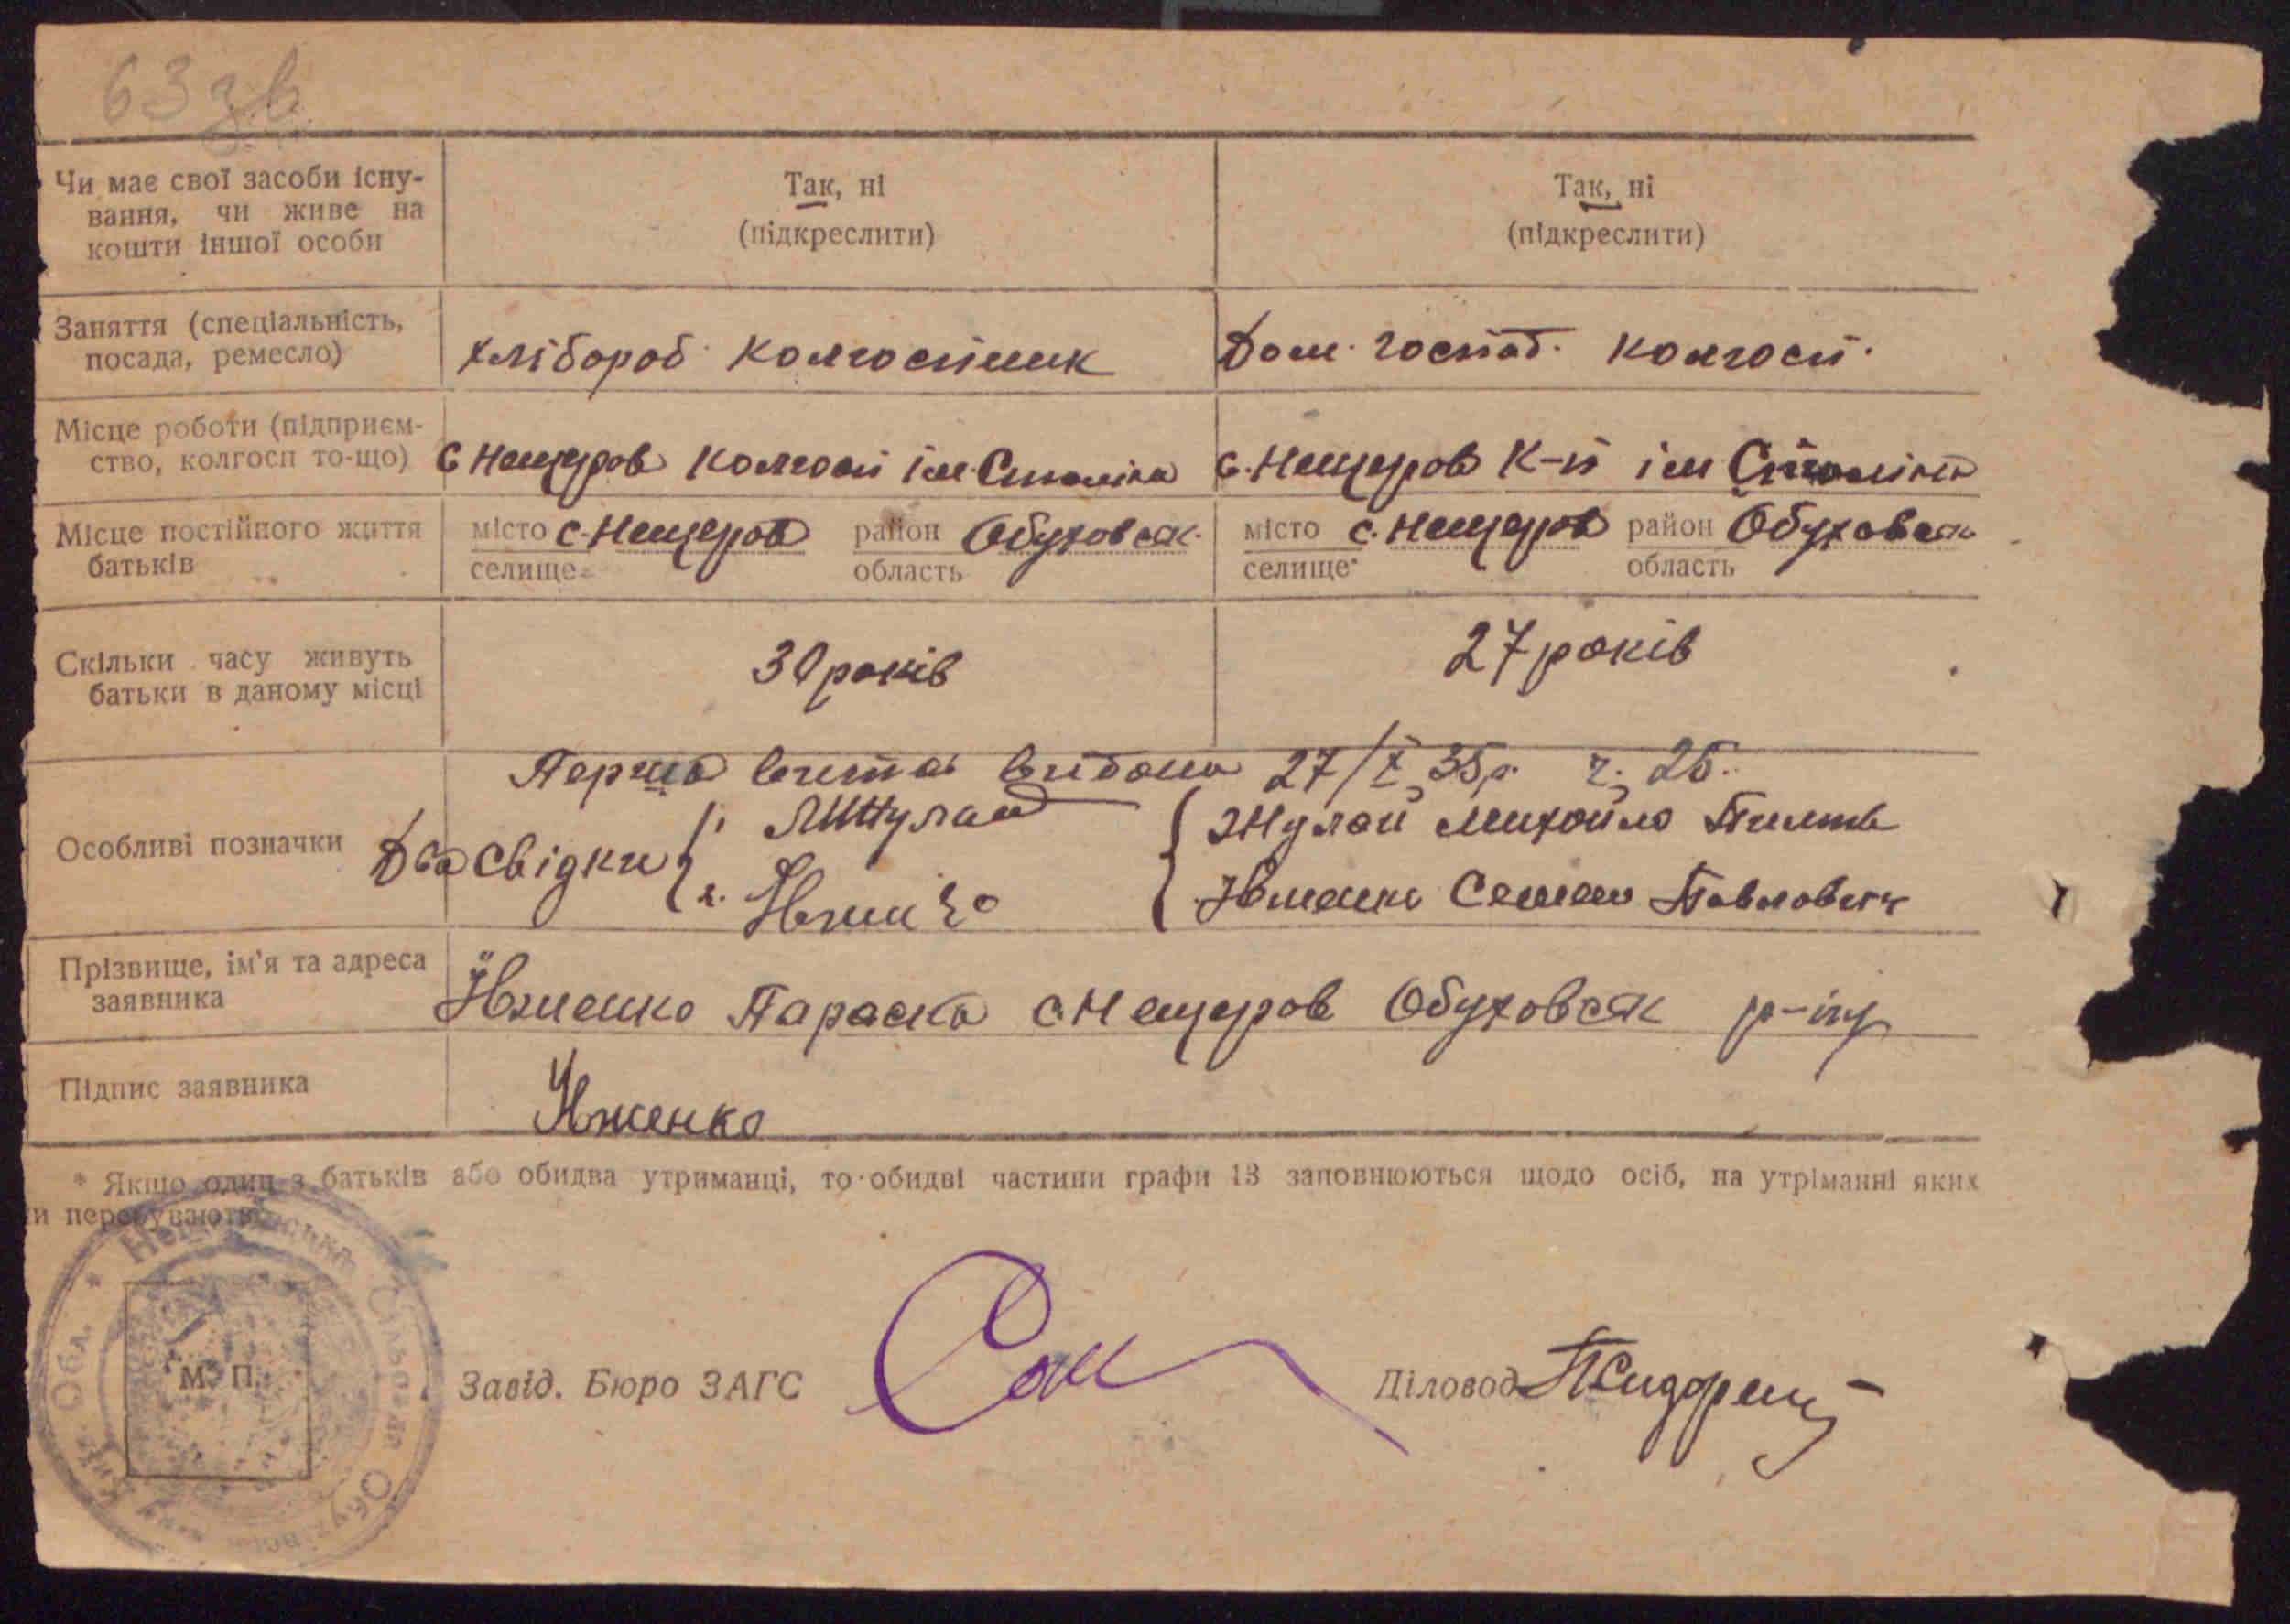 63 зв
Чи має свої засоби існу-
вання, чи живе на
кошти іншої особи
Так, ні
(підкреслити)
Так, ні
(підкреслити)
Заняття (спеціальність,
посада, ремесло)
Хлібороб колгоспник
Дом. господ. колгосп.
Місце роботи (підприєм-
ство, колгосп то-що)
С Нещеров Колгосп ім. Сталіна
С. Нещеров К-п ім Сталіна
Місце постійного життя
батьків
місто с. Нещеров район Обуховськ.
селище область
місто с. Нещеров район Обуховськ
селище область
Скільки часу живуть
батьки в даному місці
30 років
27 років
Перша видана 27/X 35 р. ч. 25.
Особливі позначки
Два свідки
1.
2.
Жулай Михайло
Семен Павлович
Прізвище, ім'я та адреса
заявника
Юженко Параска с. Нещеров Обуховськ р-ну
Підпис заявника
Юженко
* Якщо один з батьків або обидва утриманці, то обидві частини графи 13 заповнюються щодо осіб, на утріманні яких
и перебувають.
М. П.
Завід. Бюро ЗАГС
Діловод